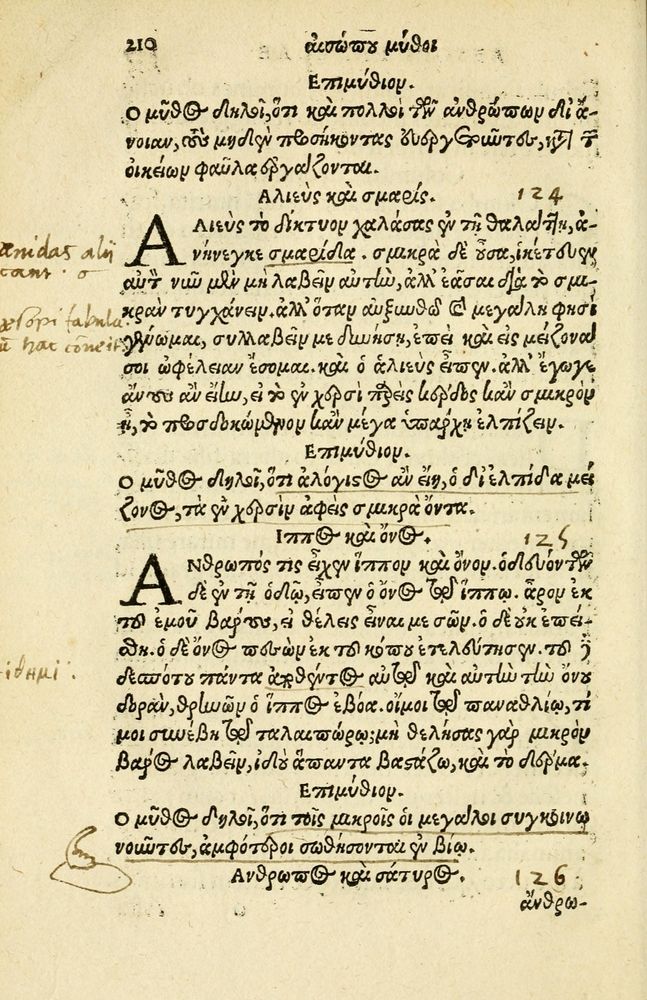 210 αἰσώπου μῦθοι
Ἐπιμύθιον.
Ὁ μῦθος δηλοῖ, ὅτι καὶ πολλοὶ τῶν ἀνθρώπων δι' ἄ-
νοιαν, τοὺς μηδὲν προσήκοντας εὐεργετοῦντες, κατὰ τῶν
οἰκείων φαῦλα ἐργάζονται.
Ἁλιεὺς καὶ σμαρίς. 124
ΑΛιεὺς τὸ δίκτυον χαλάσας ἐν τῇ θαλάττῃ, ἀ-
νήνεγκε σμαρίδα. σμικρὰ δὲ οὖσα, ἱκέτευεν
αὐτὸν νῦν μὲν μὴ λαβεῖν αὐτὴν, ἀλλ' ἐᾶσαι διὰ τὸ σμι-
κρὰν τυγχάνειν. ἀλλ' ὅταν αὐξηνθῶ καὶ μεγάλη φησὶ
γένωμαι, συλλαβεῖν με δυνήσῃ, ἐπεὶ καὶ εἰς μείζονά
σοι ὠφέλειαν ἔσομαι. καὶ ὁ ἁλιεὺς εἶπεν. ἀλλ' ἔγωγε
ἄνους ἂν εἴην, εἰ τὸ ἐν χερσὶ παρεὶς κέρδος κἂν σμικρὸν
ᾖ, τὸ προσδοκώμενον κἂν μέγα ὑπάρχῃ ἐλπίζειν.
Ἐπιμύθιον.
Ὁ μῦθος δηλοῖ, ὅτι ἀλόγιστος ἂν εἴη, ὁ δι' ἐλπίδα μεί
ζονος, τὰ ἐν χερσὶν ἀφεὶς σμικρὰ ὄντα.
Ἵππος καὶ ὄνος. 125
ΑΝθρωπός τις εἶχεν ἵππον καὶ ὄνον. ὁδευόντων
δὲ ἐν τῇ ὁδῷ, εἶπεν ὁ ὄνος τῷ ἵππῳ. ἆρον ἐκ
τοῦ ἐμοῦ βάρους, εἰ θέλεις εἶναί με σῶν. ὁ δὲ οὐκ ἐπεί-
σθη. ὁ δὲ ὄνος πεσὼν ἐκ τοῦ κόπου ἐτελεύτησεν. τοῦ δὲ
δεσπότου πάντα ἐπιθέντος αὐτῷ καὶ αὐτὴν τὴν ὄνου
δορὰν, θρηνῶν ὁ ἵππος ἐβόα. οἴμοι τῷ παναθλίῳ, τί
μοι συνέβη τῷ ταλαιπώρῳ; μὴ θελήσας γὰρ μικρὸν
βάρος λαβεῖν, ἰδοὺ ἅπαντα βαστάζω, καὶ τὸ δέρμα.
Ἐπιμύθιον.
Ὁ μῦθος δηλοῖ, ὅτι τοῖς μικροῖς οἱ μεγάλοι συγκοινω
νοῦντες, ἀμφότεροι σωθήσονται ἐν βίῳ.
Ἄνθρωπος καὶ σάτυρος. 126
ἄνθρω-